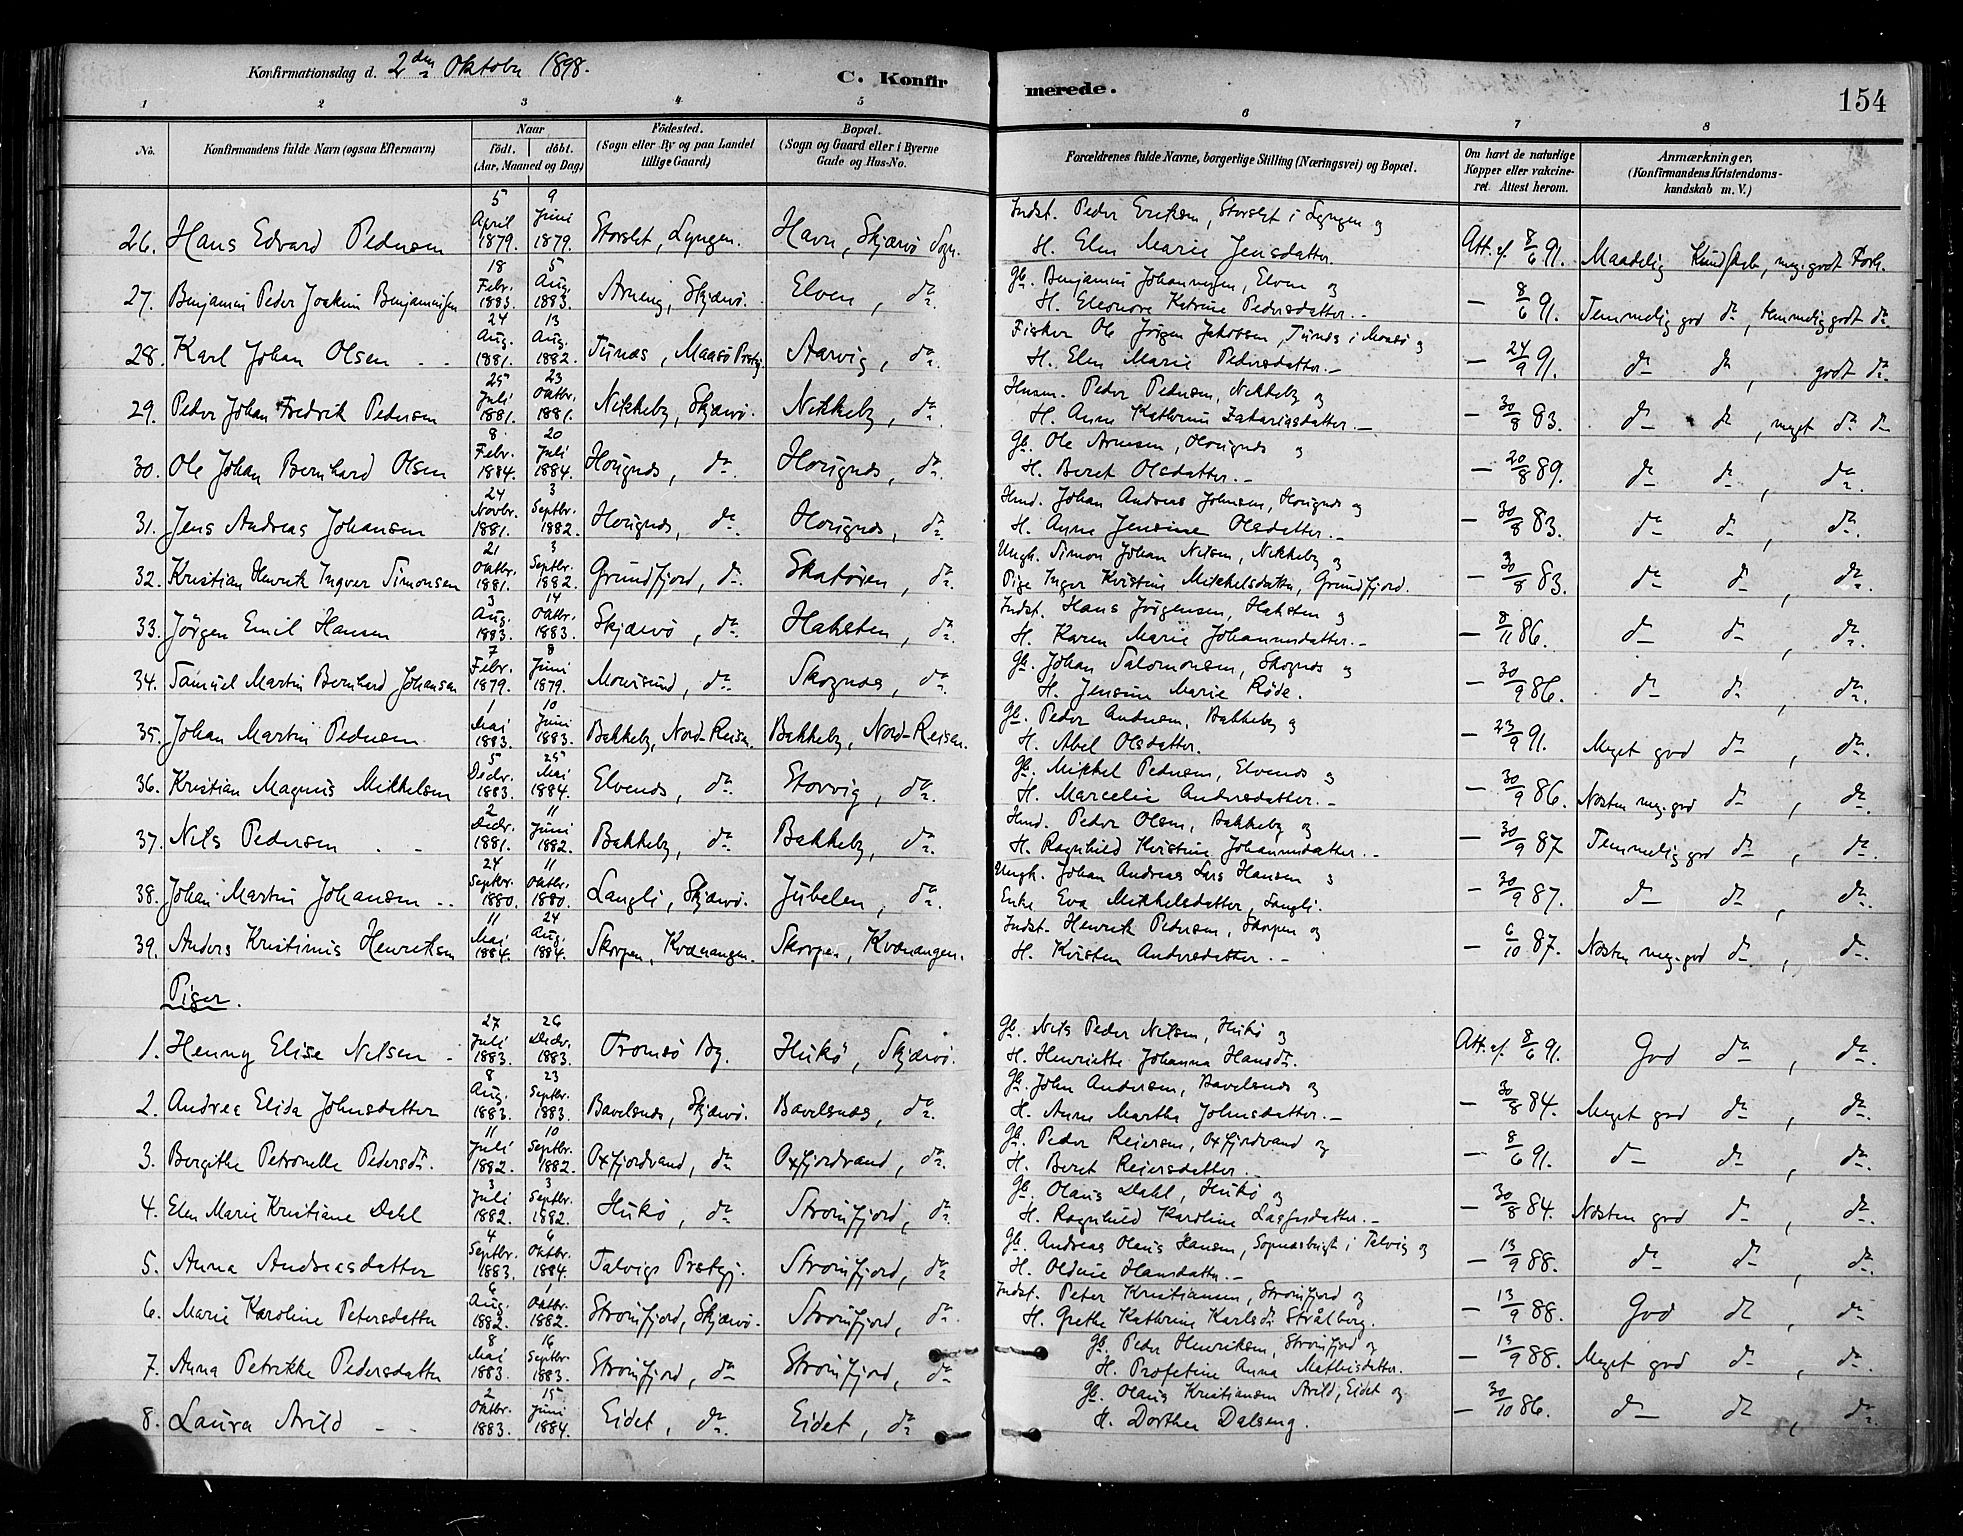 Konfirmationsdag d. 2den Oktober 1898.
C. Konfirmerede.
154
1 2 3 4 5 6 7 8
No.
Konfirmandens fulde Navn (ogsaa Efternavn)
Naar
födt. | döbt.
(Aar, Maaned og Dag)
Födested.
(Sogn eller By og paa Landet
tillige Gaard)
Bopæl.
(Sogn og Gaard eller i Byerne
Gade og Hus-No.
Forældrenes fulde Navne, borgerlige Stilling (Næringsvei) og Bopæl.
Om havt de naturlige
Kopper eller vakcineret. Attest herom.
Anmærkninger.
(Konfirmandens Kristendomskundskab m. V.)
26. Hans Edvard Pedersen 5 April 1879. 9 Juni 1879. Storslet, Lyngen. Havn, Skjærvö Sogn. Indst. Peder Eriksen, Storslet i Lyngen og
H. Elen Marie Jensdatter. Att. af 8/6 91. Maadelig Kundskab, meg. godt Forh.
27. Benjamin Peder Joakim Benjaminsen 18 Febr. 1883. 5 Aug. 1883. Arnöig, Skjærvö. Elven, do. Gb. Benjamin Johannesen, Elven og
H. Eleonore Katrine Pedersdatter. — 8/6 91. Temmelig god do, temmelig godt do.
28. Karl Johan Olsen 24 Aug. 1881. 13 Aug. 1882. Tunæs, Maasö Prstgj. Aarvig, do. Fisker Ole Jörgen Jakobsen, Tunæs i Maasö og
H. Elen Marie Pedersdatter. — 24/9 91. do do, godt do.
29. Peder Johan Fredrik Pedersen 25 Juli 1881. 23 Oktbr. 1881. Nikkeby, Skjærvö. Nikkeby, do. Husm. Peder Pedersen, Nikkeby og
H. Anne Kathrine Zakariasdatter. — 30/8 83. do do, meget do do
30. Ole Johan Bernhard Olsen 8 Febr. 1884. 20 Juli 1884. Hougnæs, do. Hougnæs, do. Gb. Ole Arnesen, Hougnæs og
H. Beret Olsdatter. — 20/8 89. do do, do.
31. Jens Andreas Johansen 24 Novbr. 1881. 3 Septbr. 1882. Hougnæs, do. Hougnæs, do. Husmd. Johan Andreas Johnsen, Hougnæs og
H. Anne Jensine Olsdatter. — 30/8 83. do do, do.
32. Kristian Henrik Ingver Simonsen 21 Oktbr. 1881. 3 Septbr. 1882. Grundfjord, do. Skatören, do. Ungk. Simon Johan Nilsen, Nikkeby og
Pige Inger Kristine Mikkelsdatter, Grundfjord. — 30/8 83. do do, do.
33. Jörgen Emil Hansen 3 Aug. 1883. 14 Oktbr. 1883. Skjærvö, do. Haksten, do. Indst. Hans Jörgensen, Haksten og
H. Karen Marie Johannesdatter. — 8/11 86. do do, do.
34. Samuel Martin Bernhard Johansen 7 Febr. 1879. 8 Juni 1879. Maursund, do. Skognæs, do. Gb. Johan Salomonsen, Skognæs og
H. Jensine Marie Röde. — 30/9 86. do do, do.
35. Johan Martin Pedersen 1 Mai 1883. 10 Juni 1883. Bakkeby, Nord-Reisen. Bakkeby, Nord-Reisen. Gb. Peder Andersen, Bakkeby og
H. Abel Olsdatter. — 23/9 91. Meget god do, do.
36. Kristian Magnus Mikkelsen 5 Decbr. 1883. 25 Mai 1884. Elvenæs, do. Storvig, do. Gb. Mikkel Pedersen, Elvenæs og
H. Marcelie Andersdatter. — 30/9 86. Næsten meg. god do, do.
37. Nils Pedersen 2 Decbr. 1881. 11 Juni 1882. Bakkeby, do. Bakkeby, do. Husmd. Peder Olsen, Bakkeby og
H. Ragnhild Kristine Johannesdatter. — 30/9 87 Temmelig god do, do.
38. Johan Martin Johansen 24 Septbr. 1880. 11 Oktbr. 1880. Laugli, Skjærvö. Jubelen, do. Ungk. Johan Andreas Lars Hansen og
Enke Eva Mikkelsdatter, Laugli. — 30/9 87. do do, do.
39. Anders Kristinus Henriksen 11 Mai 1884. 24 Aug. 1884. Skorpen, Kvænangen. Skorpen, Kvænangen. Indst. Henrik Pedersen, Skorpen og
H. Kirsten Andersdatter. — 6/10 87. Næsten meg. god do, do.
Piger.
1. Henny Elise Nilsen 27 Juli 1883. 26 Decbr. 1883. Tromsö By. Hukö, Skjærvö. Gb. Nils Peder Nilsen, Hukö og
H. Henriette Johanna Hansdr. Att. af 8/6 91. God do, do.
2. Andrea Elida Johnsdatter 8 Aug. 1883. 23 Septbr. 1883. Bavelsnæs, Skjærvö. Bavelsnæs, do. Gb. John Andersen, Bavelsnæs og
H. Anne Martha Johnsdatter. — 30/8 84. Meget god do, do.
3. Bergithe Petronelle Pedersdr. 11 Juli 1882. 10 Septbr. 1882. Oxfjordvand, do. Oxfjordvand, do. Gb. Peder Reiersen, Oxfjordvand og
H. Beret Reiersdatter. — 8/6 91. do do, do.
4. Elen Marie Kristiane Dahl 3 Juli 1882. 3 Septbr. 1882. Hukö, do. Straumfjord, do. Gb. Olaus Dahl, Hukö og
H. Ragnhild Karoline Lasfusdatter. — 30/8 84. Næsten god do, do.
5. Anna Andreasdatter 4 Septbr. 1883. 6 Oktbr. 1884. Talvigs Prstgj. Straumfjord, do. Gb. Andreas Olaus Hansen, Sopnesbugt i Talvig og
H. Oldine Hansdatter. — 13/9 88. do do, do.
6. Marie Karoline Petersdatter 6 Aug. 1882. 1 Oktbr. 1882. Straumfjord, Skjærvö. Straumfjord, do. Indst. Peter Kristiansen, Straumfjord og
H. Grethe Kathrine Karlsdr. Strålberg. — 13/9 88. God do, do
7. Anna Petrikke Pedersdatter 8 Mai 1883. 16 Septbr. 1883. Straumfjord, do. Straumfjord, do. Gb. Peder Henriksen, Straumfjord og
H. Profetine Anna Mathisdatter. — 13/9 88. Meget god do, do.
8. Laura Arild 2 Oktbr. 1883. 15 Juni 1884. Eidet, do. Eidet, do. Gb. Olaus Kristiansen Arild, Eidet og
H. Dorthea Dalseng. — 30/10 86. do do, do.